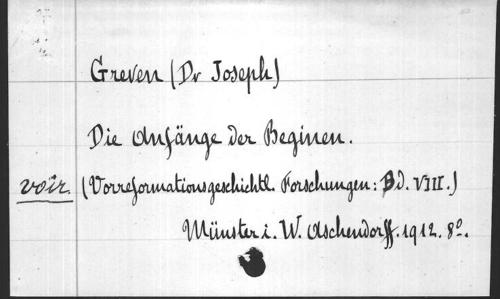 Greven (Dr Joseph)
Die Anfänge der Beginen.
voir (Vorreformationsgeschichtl. Forschungen: Bd. VIII.)
Münster i. W. Aschendorff. 1912. 8°.